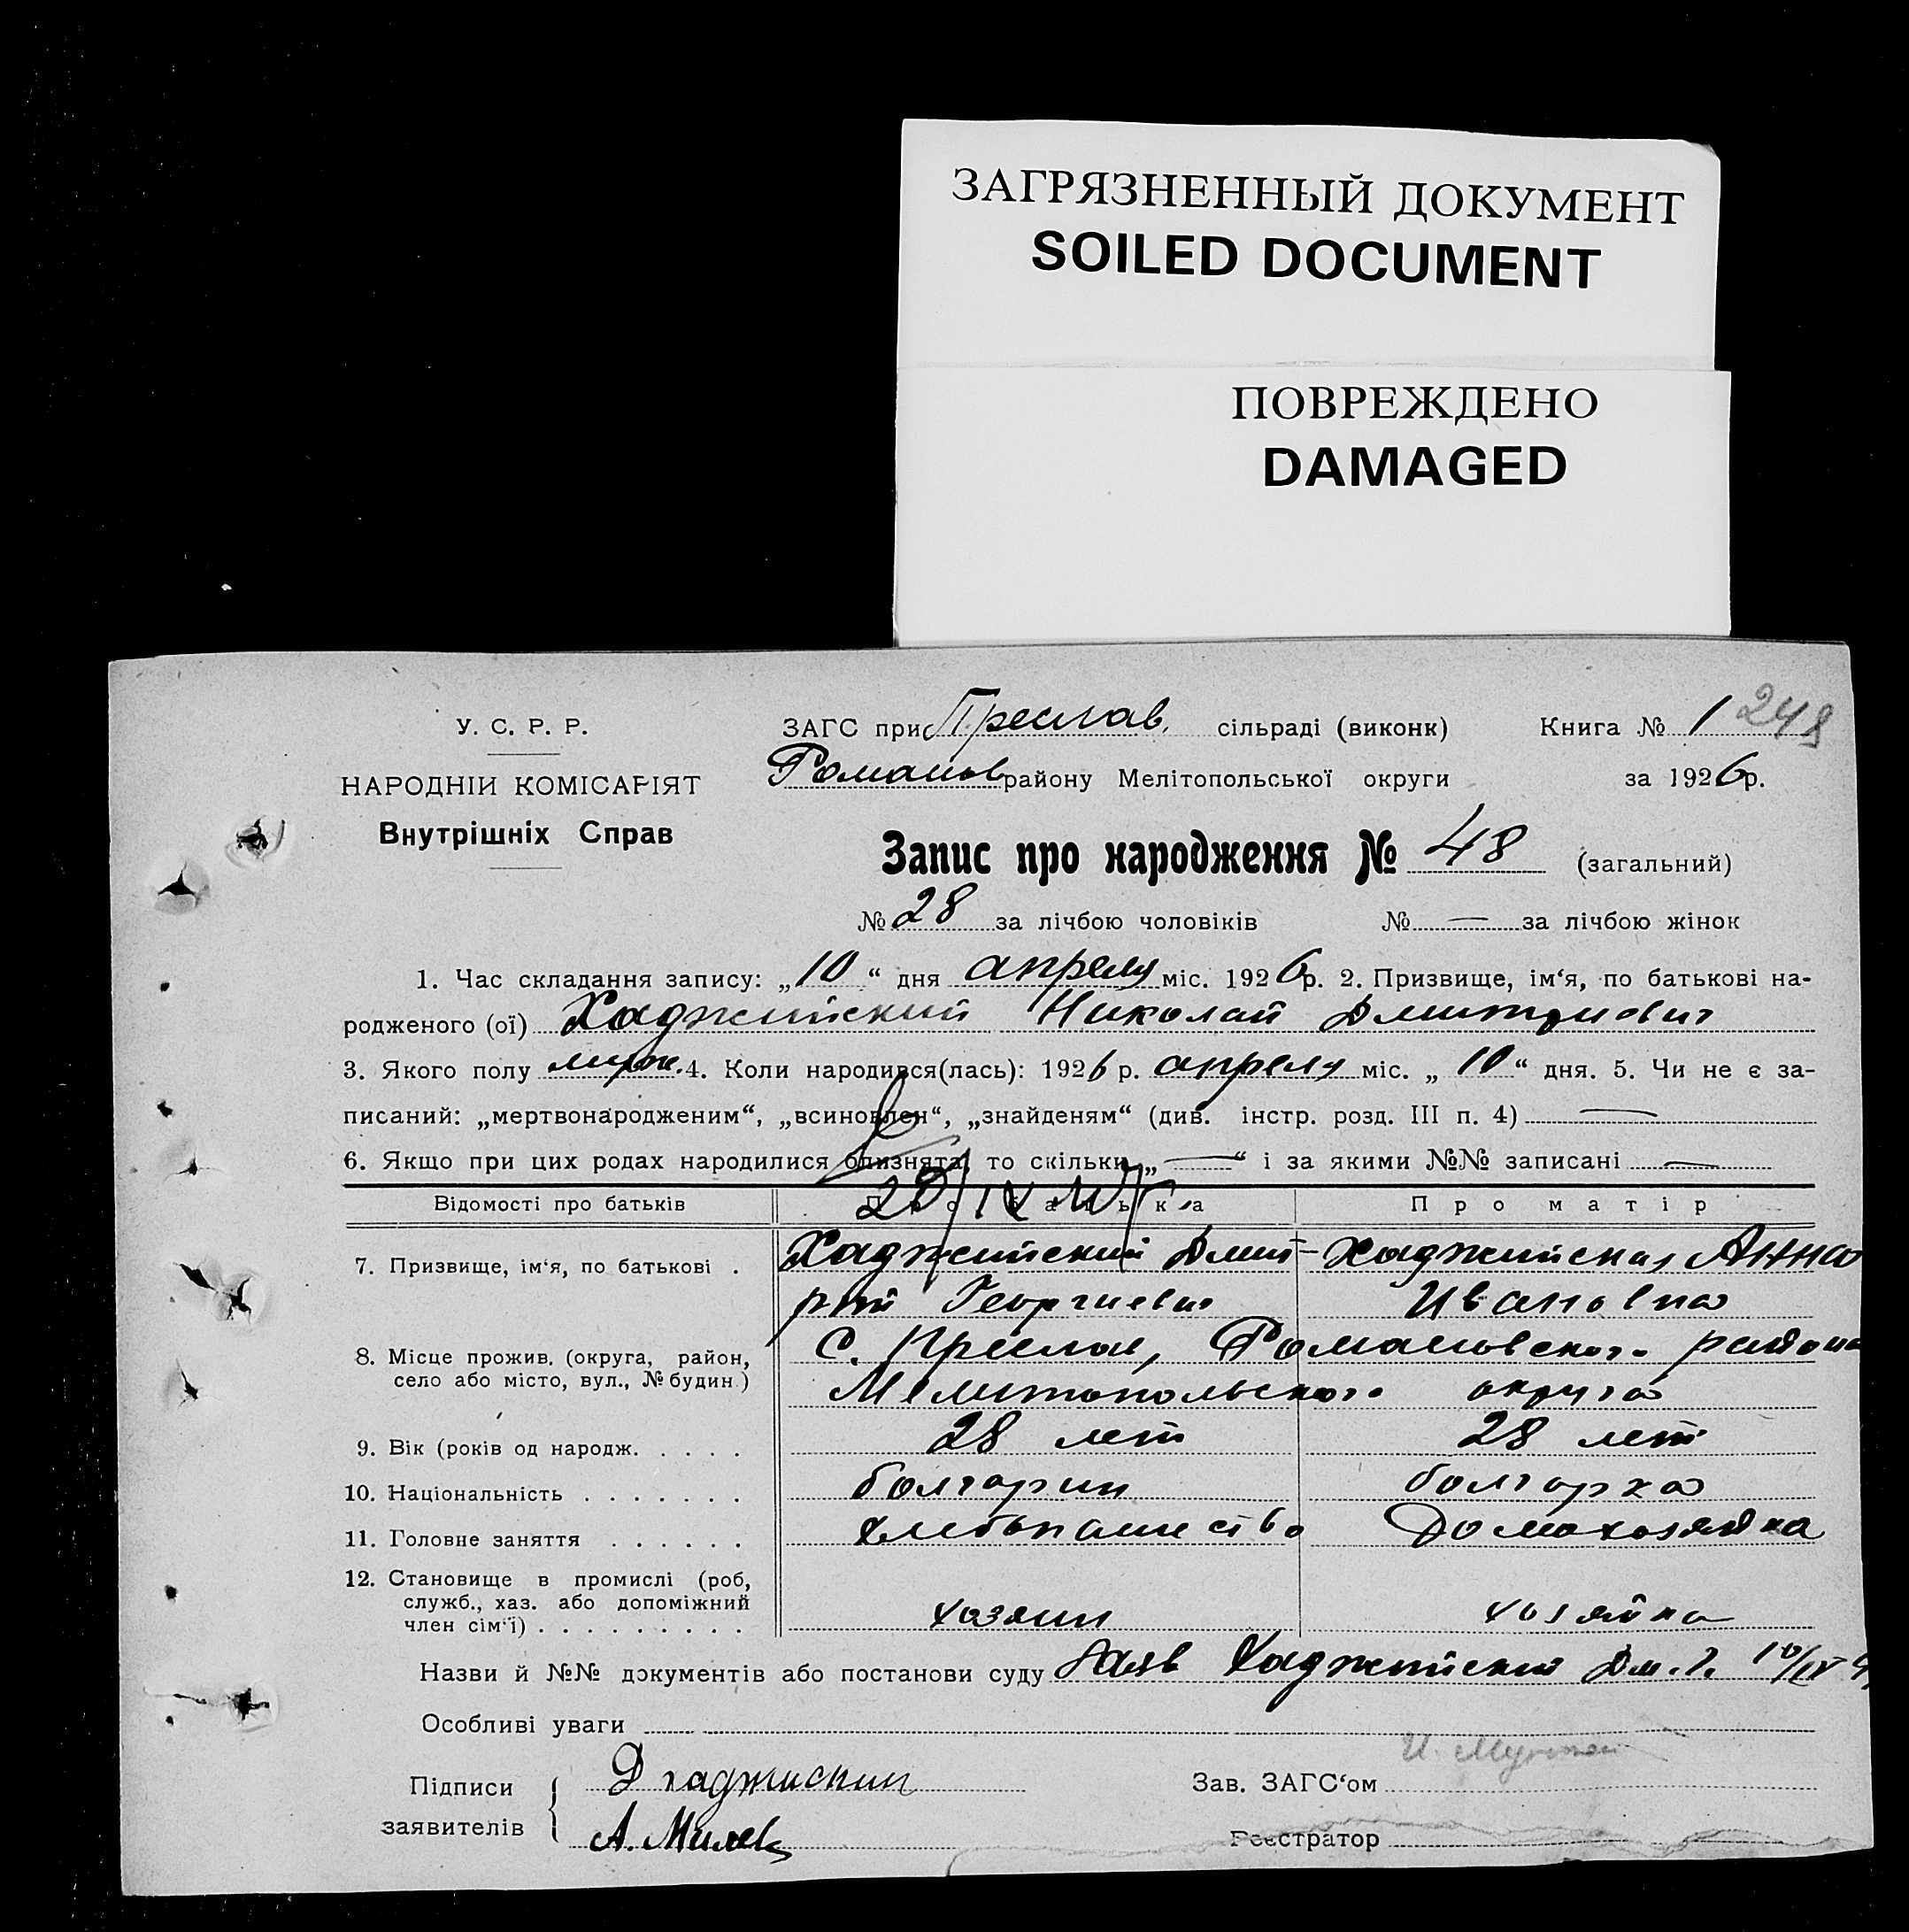 ЗАГРЯЗНЕННЫЙ ДОКУМЕНТ
SOILED DOCUMENT
ПОВРЕЖДЕНО
DAMAGED
У. С. Р. Р.
ЗАГС при Преслав. сільраді (виконк) Книга № 1 248
НАРОДНІЙ КОМІСАРІЯТ
Романов району Мелітопольської округи за 1926 р.
Внутрішніх Справ
Запис про народження № 48 (загальний)
№ 28 за лічбою чоловіків № — за лічбою жінок
1. Час складання запису: „10“ дня апреля міс. 1926 р. 2. Призвище, ім‘я, по батькові на-
родженого (ої) Хаджийский Николай Дмитриевич
3. Якого полу муж. 4. Коли народився(лась): 1926 р. апреля міс. „10“ дня. 5. Чи не є за-
писаний: „мертвонародженим“, „всиновлен“, „знайденям“ (див. інстр. розд. III п. 4) —
6. Якщо при цих родах народилися близнята, то скільки „—“ і за якими №№ записані —
Відомості про батьків Про батька Про матір
7. Призвище, ім‘я, по батькові . Хаджийский Дмит- Хаджийская Анна
рий Георгиевич Ивановна
8. Місце прожив. (округа, район, с. Преслав, Романовского района
село або місто, вул., № будин.) Мелитопольского округа
9. Вік (років од народж. . . . . 28 лет 28 лет
10. Національність . . . . . . . болгарин болгарка
11. Головне заняття . . . . . . хлебопашество Домохозяйка
12. Становище в промислі (роб,
служб., хаз. або допоміжний
член сім‘ї) . . . . . . . . . хозяин хозяйка
Назви й №№ документів або постанови суду Заяв Хаджийский Дм. Г. 10/IV
Особливі уваги
Підписи Д хаджиский Зав. ЗАГС‘ом
заявителів А. Милев
Реєстратор